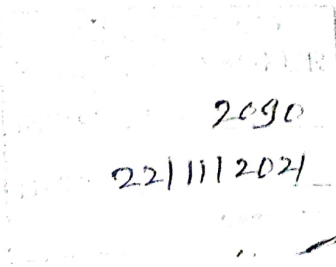 2090
22/11/2021